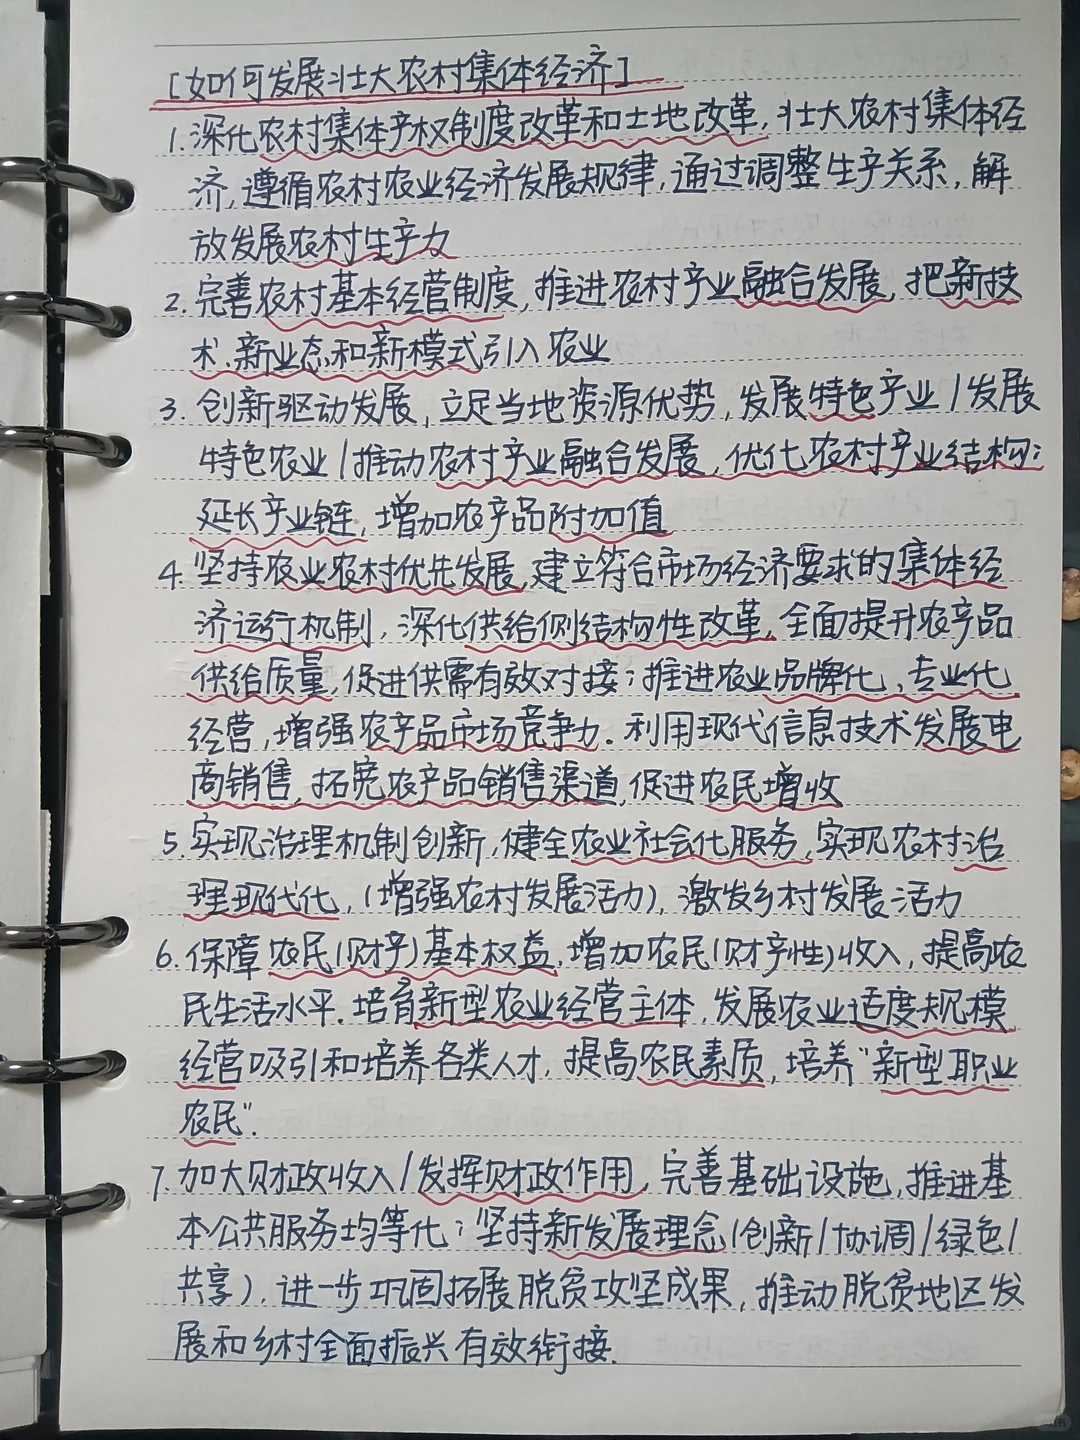 [如何发展壮大农村集体经济]
1.深化农村集体产权制度改革和土地改革,壮大农村集体经
济,遵循农村农业经济发展规律,通过调整生产关系,解
放发展农村生产力
2.完善农村基本经营制度,推进农村产业融合发展,把新技
术、新业态和新模式引入农业
3.创新驱动发展,立足当地资源优势,发展特色产业/发展
特色农业/推动农村产业融合发展,优化农村产业结构;
延长产业链,增加农产品附加值
4.坚持农业农村优先发展,建立符合市场经济要求的集体经
济运行机制,深化供给侧结构性改革,全面提升农产品
供给质量,促进供需有效对接;推进农业品牌化、专业化
经营,增强农产品市场竞争力.利用现代信息技术发展电
商销售,拓宽农产品销售渠道,促进农民增收
5.实现治理机制创新,健全农业社会化服务,实现农村治
理现代化,(增强农村发展活力),激发乡村发展活力
6.保障农民(财产)基本权益,增加农民(财产性)收入,提高农
民生活水平.培育新型农业经营主体,发展农业适度规模
经营吸引和培养各类人才,提高农民素质,培养“新型职业
农民”.
7.加大财政收入/发挥财政作用,完善基础设施,推进基
本公共服务均等化;坚持新发展理念(创新/协调/绿色/
共享),进一步巩固拓展脱贫攻坚成果,推动脱贫地区发
展和乡村全面振兴有效衔接.